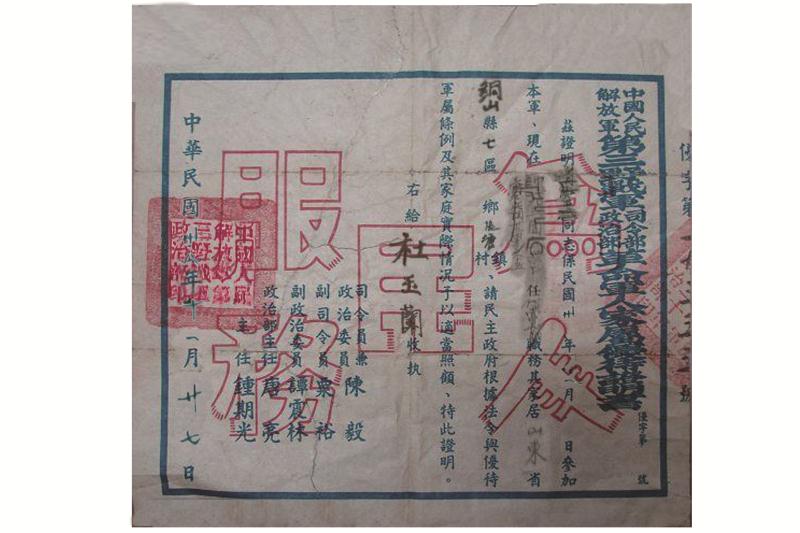 中國人民解放軍第三野戰軍司令部政治部革命軍人家屬優待證明書
優字第 號
茲證明 同志係民國卅 年 一月 日參加
本軍、現在 任 職務其家居山東省
銅山縣七區 鄉 鎮村、請民主政府根據法令與優待
軍屬條例及其家庭實際情況予以適當照顧、待此證明。
右給
杜玉蘭收執
司令員兼政治委員 陳毅
副司令員 粟裕
副政治委員 譚震林
政治部主任 唐亮
主任 鍾期光
中華民國卅 年十一月廿七日
為人民服務
中國人民解放軍第三野戰軍政治部印